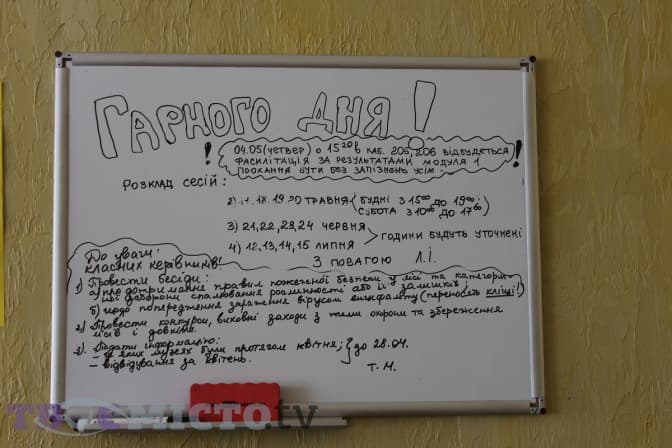 ГАРНОГО ДНЯ!
! 04.05 (четвер) о 15²⁰ в каб. 205, 206 відбудеться !
фасилітація за результатами модуля 1
прохання бути без запізнень усім!
Розклад сесій:
2) 18, 19, 20 травня (будні з 15⁰⁰ до 19⁰⁰;
субота з 10⁰⁰ до 17⁰⁰)
3) 21, 22, 23, 24 червня
години будуть уточнені
4) 12, 13, 14, 15 липня
З повагою Л.І.
До уваги
класних керівників!
1) Провести бесіди:
а) про дотримання правил пожежної безпеки у лісі та категорич-
ної заборони спалювання рослинності або її залишків;
б) щодо попередження зараження вірусом енцефаліту (переносять кліщі!)
2) Провести конкурси, виховні заходи з теми охорони та збереження
лісів і довкілля.
3) Подати інформацію:
– в яких музеях були протягом квітня;
– відвідування за квітень. } до 28.04.
Т.М.
МІСТО.tv